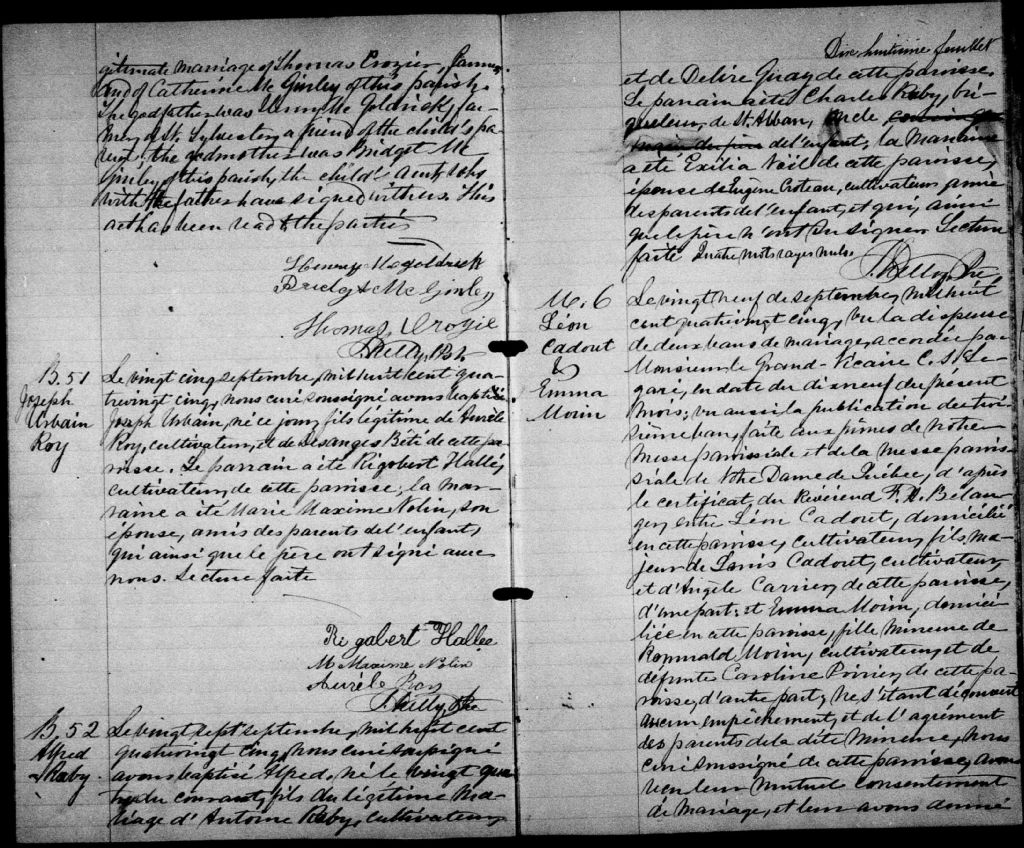 gitimate marriage of Thomas Crozier, farmer
and of Catherine Mc Ginley of this parish.
The godfather was Henry Mc Goldrick, far-
mer, of St. Sylvester, a friend of the child's pa-
rents, the godmother was Bridget Mc
Ginley, of this parish, the child's aunt who
with the father have signed with us. This
act has been read to the parties
Henry Mcgoldrick
Bridget McGinley
Thomas Crozie
J. Kelly, Pst.
B. 51
Joseph
Urbain
Roy
Le vingt cinq septembre, mil huit cent qua-
trevingt cinq, nous curé soussigné avons baptisé
Joseph Urbain, né ce jour, fils légitime de Aurèle
Roy, cultivateur, et de Desanges Bêté de cette pa-
roisse. Le parrain a été Rigobert Hallé,
cultivateur, de cette paroisse; la mar-
raine a été Marie Maxime Nolin, son
épouse, amis des parents de l'enfant,
qui ainsi que le père ont signé avec
nous. Lecture faite
Rigabert Hallee
M Maxime Nolin
Aurèle Roy
J. Kelly, Ptre
B. 52
Alfred
Raby
Le vingt sept septembre, mil huit cent
quatrevingt cinq, nous curé soussigné
avons baptisé Alfred, né le vingt qua-
tre du courant, fils du légitime Ma-
riage d'Antoine Raby, cultivateur,
Dix huitième feuillet
et de Delire Guay de cette paroisse.
Le parrain a été Charles Raby, bri-
queleur, de St. Alban, oncle
de l'enfant, la Marraine
a été Exilia Noël de cette paroisse,
épouse de Eugène Croteau, cultivateur, amie
des parents de l'enfant, et qui, ainsi
que le père n'ont su signer. Lecture
faite Quatre mots rayés nuls.
J. Kelly, Ptre
M. 6
Léon
Cadout
&
Emma
Morin
Le vingt neuf de septembre, mil huit
cent quatrevingt cinq, vu la dispense
de deux bans de mariage, accordée par
Monsieur le Grand-Vicaire C. S. Le-
garé, en date du dix neuf du présent
mois; vu aussi la publication du troi-
sième ban, faite aux prônes de notre
messe paroissiale et de la messe parois-
siale de Notre Dame de Québec, d'après
le certificat, du Révérend F. H. Bélan-
ger, entre Léon Cadout, domicilié
en cette paroisse, cultivateur, fils, ma-
jeur de Louis Cadout, cultivateur,
et d'Angèle Carrier, de cette paroisse,
d'une part: et Emma Morin, domici-
liée en cette paroisse, fille mineure de
Romuald Morin, cultivateur, et de
défunte Caroline Poirier, de cette pa-
roisse, d'autre part, ne s'étant découvert
aucun empêchement, et de l'agrément
des parents de la dite mineure, nous
curé soussigné de cette paroisse, avons
reçu leur mutuel consentement
de Mariage, et leur avons donné